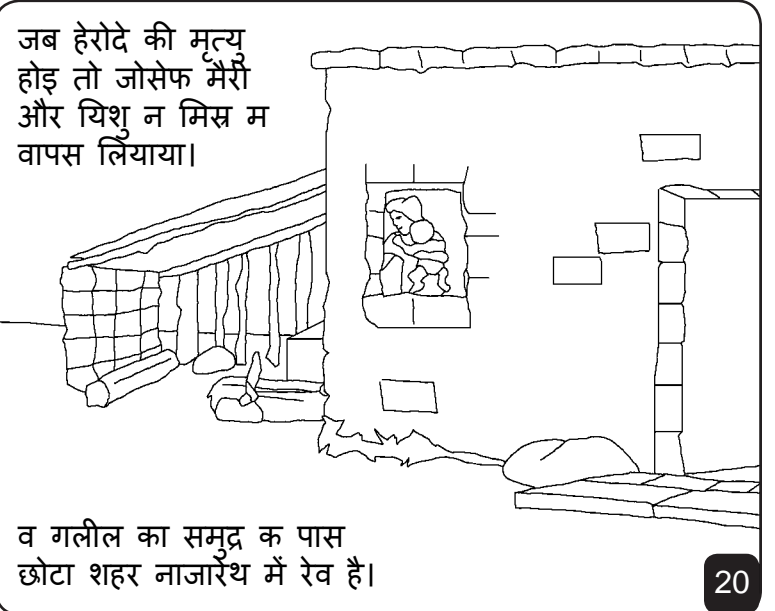 जब हेरोदे की मृत्यु
होइ तो जोसेफ मैरी
और यिशु न मिस्र म
वापस लियाया।
व गलील का समुद्र क पास
छोटा शहर नाजारेथ में रेव है।
20